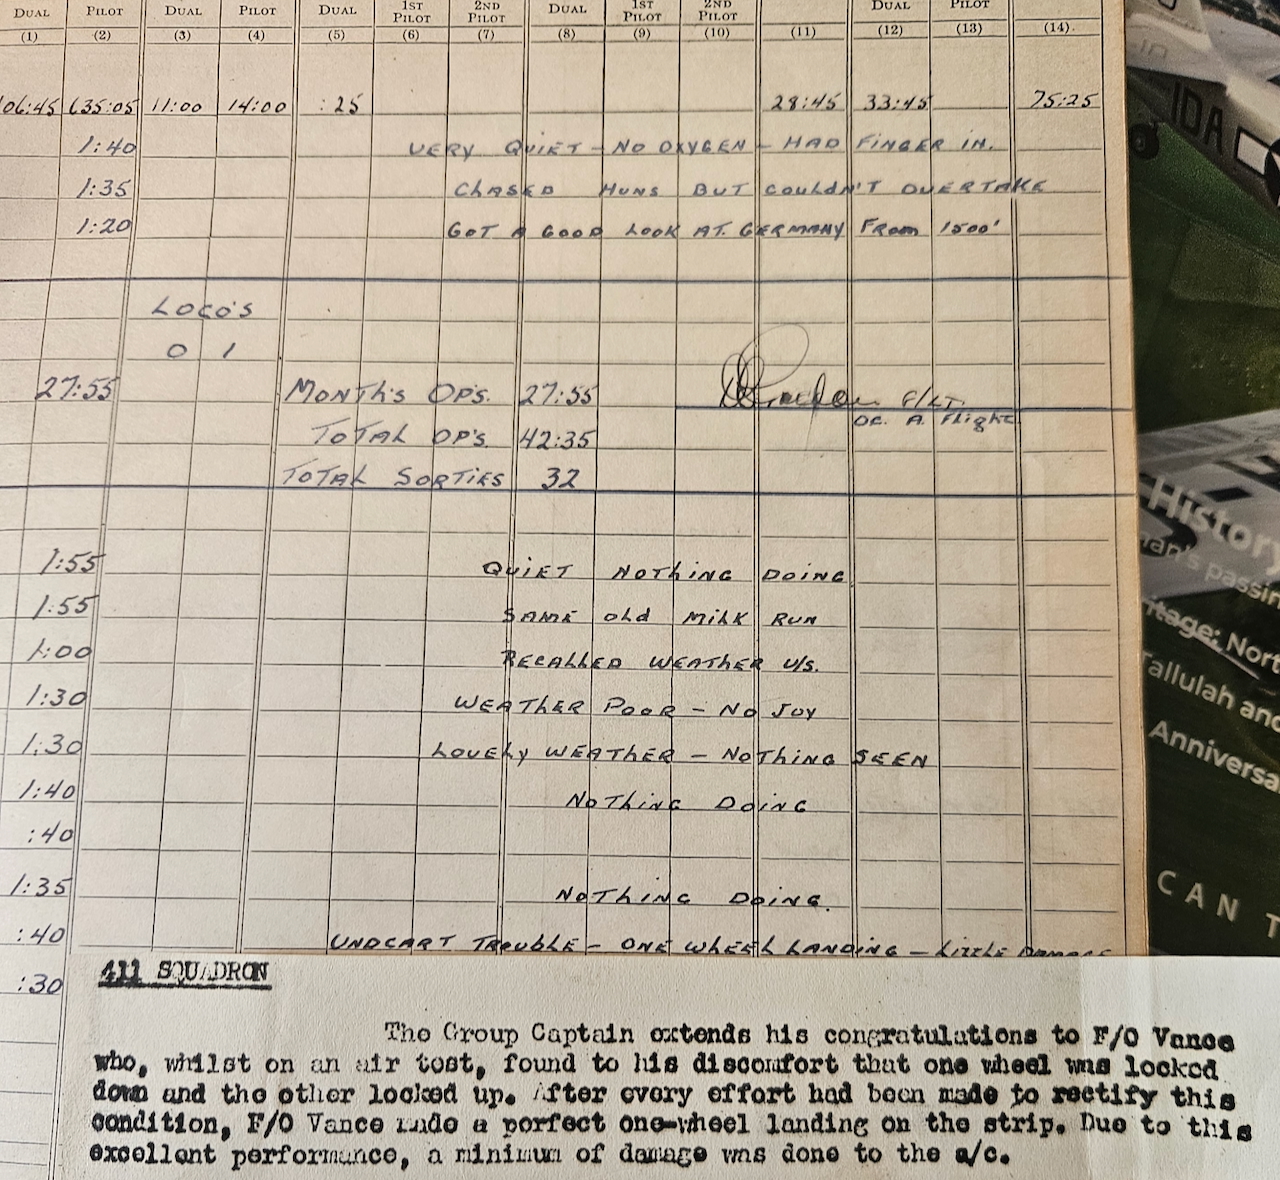 DUAL PILOT DUAL PILOT DUAL 1ST PILOT 2ND PILOT DUAL 1ST PILOT 2ND PILOT DUAL PILOT
(1) (2) (3) (4) (5) (6) (7) (8) (9) (10) (11) (12) (13) (14)
106:45 635:05 11:00 14:00 :25 28:45 33:45 75:25
1:40 VERY QUIET - NO OXYGEN - HAD FINGER IN.
1:35 CHASED HUNS BUT COULDN'T OVERTAKE
1:20 GOT A GOOD LOOK AT GERMANY FROM 1500'
LOCO'S
0 1
27:55 MONTH'S OP'S. 27:55 F/LT.
OC. A. Flight
TOTAL OP'S. 42:35
TOTAL SORTIES 32
1:55 QUIET NOTHING DOING
1:55 SAME OLD MILK RUN
1:00 RECALLED WEATHER U/S.
1:30 WEATHER POOR - NO JOY
1:30 LOVELY WEATHER - NOTHING SEEN
1:40 NOTHING DOING
:40
1:35 NOTHING DOING.
:40 UNDCART TROUBLE - ONE WHEEL LANDING - LITTLE DAMAGE
:30
411 SQUADRON
The Group Captain extends his congratulations to F/O Vance
who, whilst on an air test, found to his discomfort that one wheel was locked
down and the other locked up. After every effort had been made to rectify this
condition, F/O Vance made a perfect one-wheel landing on the strip. Due to this
excellent performance, a minimum of damage was done to the a/c.
IDA
History
passin
Nort
Tallulah and
Anniversa
CAN T